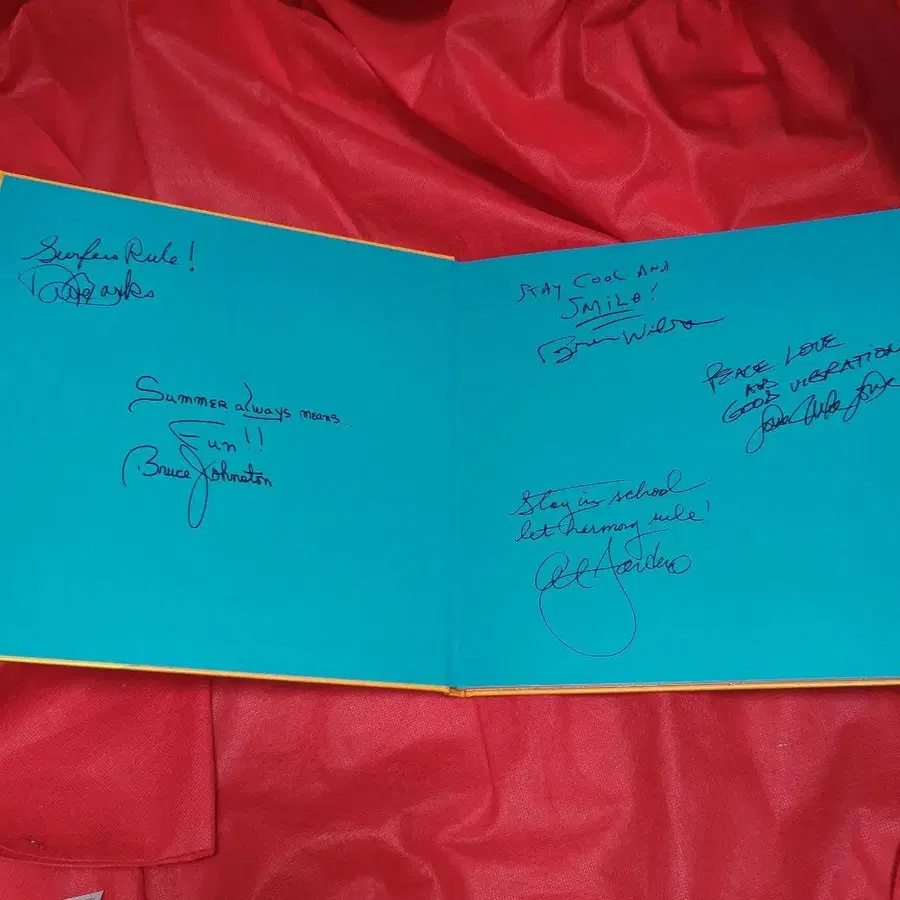 Surfers Rule!
David Marks
Summer always means
Fun!!
Bruce Johnston
STAY COOL AND
SMiLE!
Brian Wilson
PEACE LOVE
AND
GOOD VIBRATIONS
Love Mike Love
Stay in school
let harmony rule!
Al Jardine